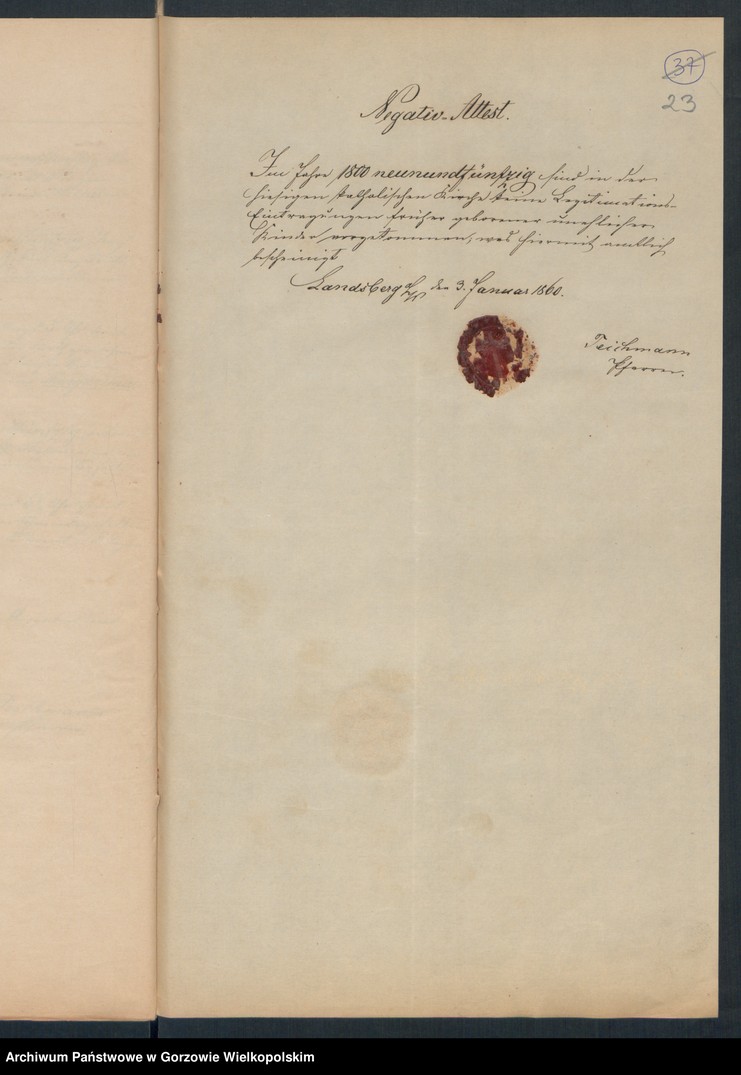 37
23
Negativ-Attest.
Im Jahre 1800 neunundfünfzig sind in der
hiesigen katholischen Kirche keine Legitimations-
Eintragungen früher geborener unehlicher
Kinder vorgekommen, was hiermit amtlich
bescheinigt
Landsberg a/W den 3. Januar 1860.
Teichmann
Pfarrer.
Archiwum Państwowe w Gorzowie Wielkopolskim